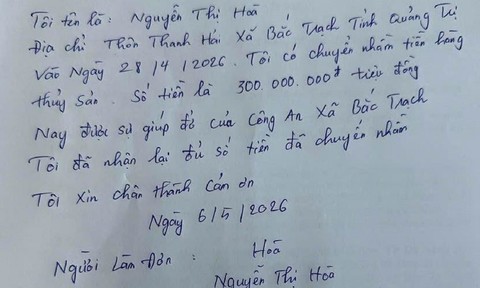 Tôi tên là: Nguyễn Thị Hoà
Địa chỉ Thôn Thanh Hải Xã Bắc Trạch Tỉnh Quảng Trị
Vào Ngày 28/4/2026. Tôi có chuyển nhầm tiền hàng
thủy sản. Số tiền là 300.000.000đ triệu đồng
Nay được sự giúp đỡ của Công An Xã Bắc Trạch
Tôi đã nhận lại đủ số tiền đã chuyển nhầm
Tôi xin chân thành cản ơn
Ngày 6/5/2026
Người Làm Đơn: Hoà
Nguyễn Thị Hoà